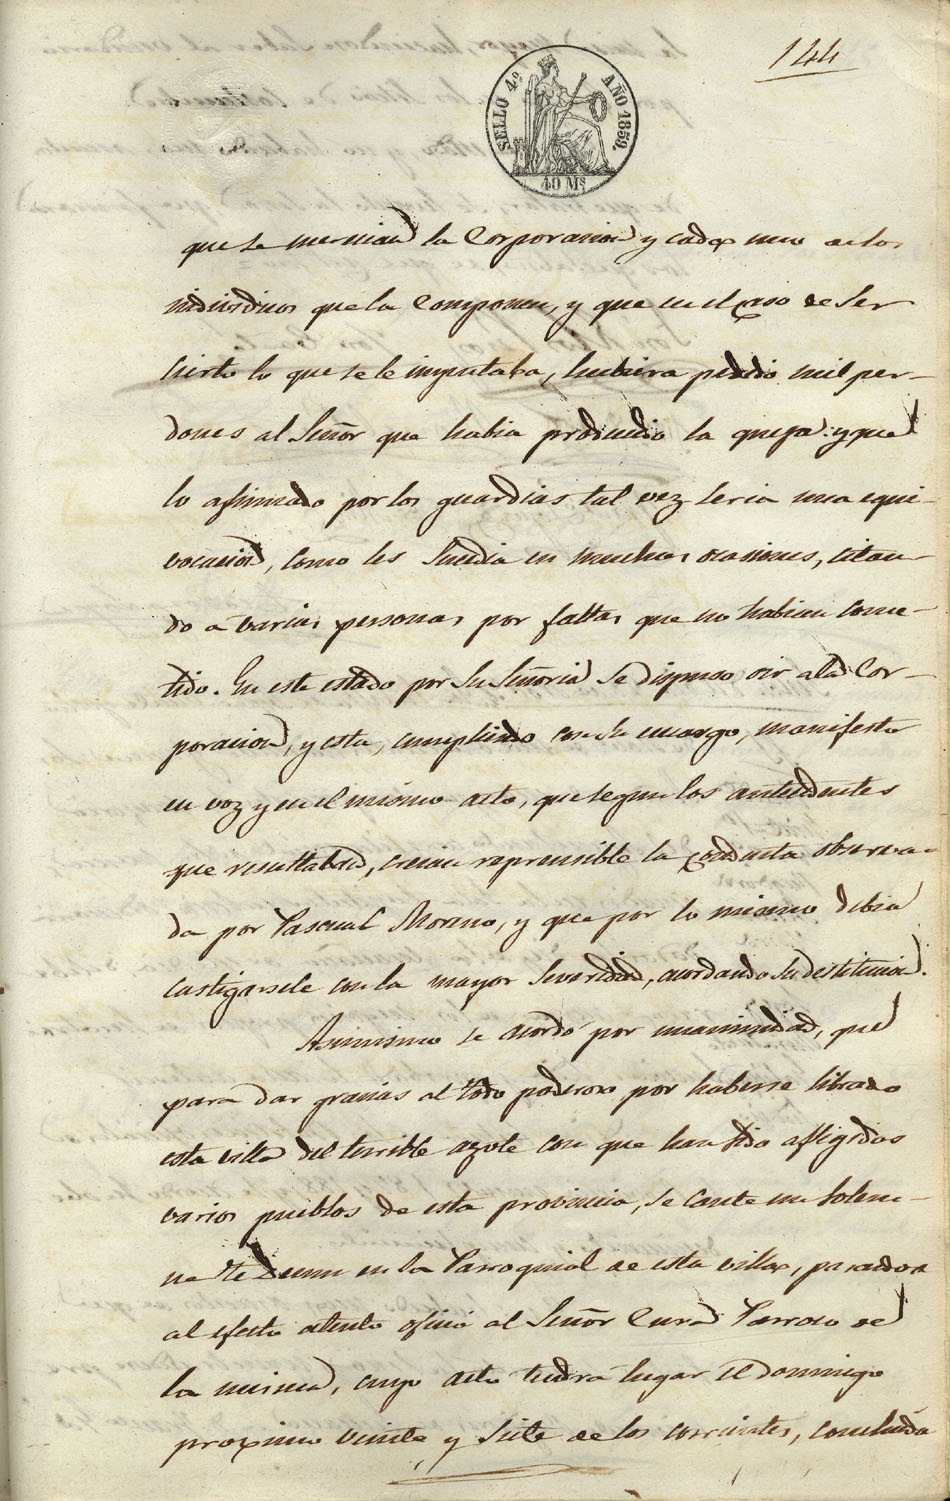 144
SELLO 4º AÑO 1859.
40 Ms
que se merecian la Corporacion y cada uno de los
individuos que la Componen, y que en el caso de Ser
cierto lo que se le imputaba, hubiera pedido mil per-
dones al Señor que habia producido la queja: y que
lo afirmado por los guardias tal vez seria una equi-
vocacion, como les Sucedia en muchas ocasiones, citan-
do a varias personas por faltas que no habian come-
tido. En este estado por Su Señoria Se dispuso oir a la Cor-
poracion, y esta, cumpliendo con su encargo, manifesto
en voz y en el mismo acto, que segun los antecedentes
que resultaban, creian reprensible la conducta observa-
da por Pascual Moreno, y que por lo mismo debia
castigarsele con la mayor Severidad, acordando su destitucion.
Asimismo se acordó por unanimidad, que
para dar gracias al todo poderoso por haberse librado
esta villa del terrible azote con que han sido afligidos
varios pueblos de esta provincia, se cante un Solem-
ne te Deum en la Parroquial de esta villa, pasandose
al efecto atento oficio al Señor Cura Parroco de
la misma, cuyo acto tendrá lugar el domingo
proximo veinte y siete de los corrientes, concluida